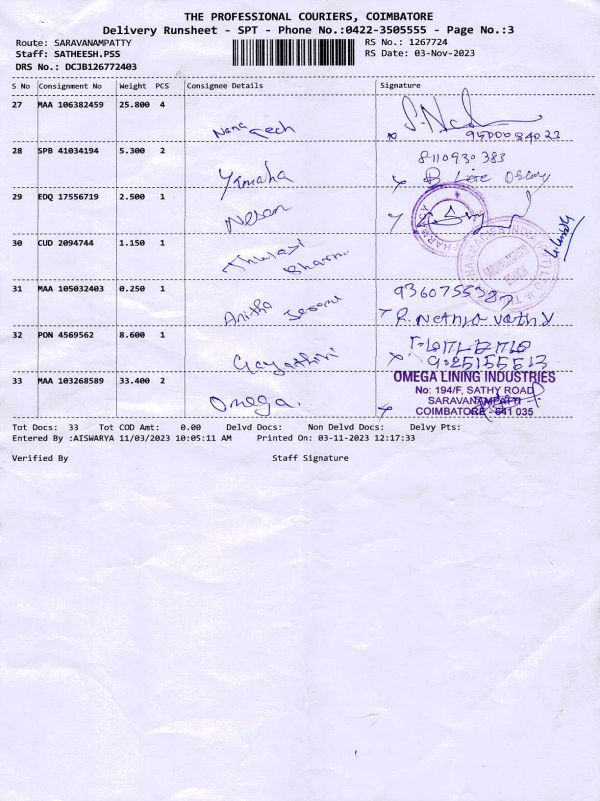 THE PROFESSIONAL COURIERS, COIMBATORE
Delivery Runsheet - SPT - Phone No.:0422-3505555 - Page No.:3
Route: SARAVANAMPATTY RS No.: 1267724
Staff: SATHEESH.PSS RS Date: 03-Nov-2023
DRS No.: DCJB126772403
S No Consignment No Weight PCS Consignee Details Signature
27 MAA 106382459 25.800 4
Nano Tech 9500084023
28 SPB 41034194 5.300 2 8110930383
Yamaha
29 EDQ 17556719 2.500 1
30 CUD 2094744 1.150 1
Thulasi
31 MAA 105032403 0.250 1
Anitha R. Nethra vathy
32 PON 4569562 8.600 1
Gayathri 9025155513
33 MAA 103268589 33.400 2 OMEGA LINING INDUSTRIES
Omega. No: 194/F, SATHY ROAD
SARAVANAMPATTI
COIMBATORE - 641 035
Tot Docs: 33 Tot COD Amt: 0.00 Delvd Docs: Non Delvd Docs: Delvy Pts:
Entered By :AISWARYA 11/03/2023 10:05:11 AM Printed On: 03-11-2023 12:17:33
Verified By Staff Signature